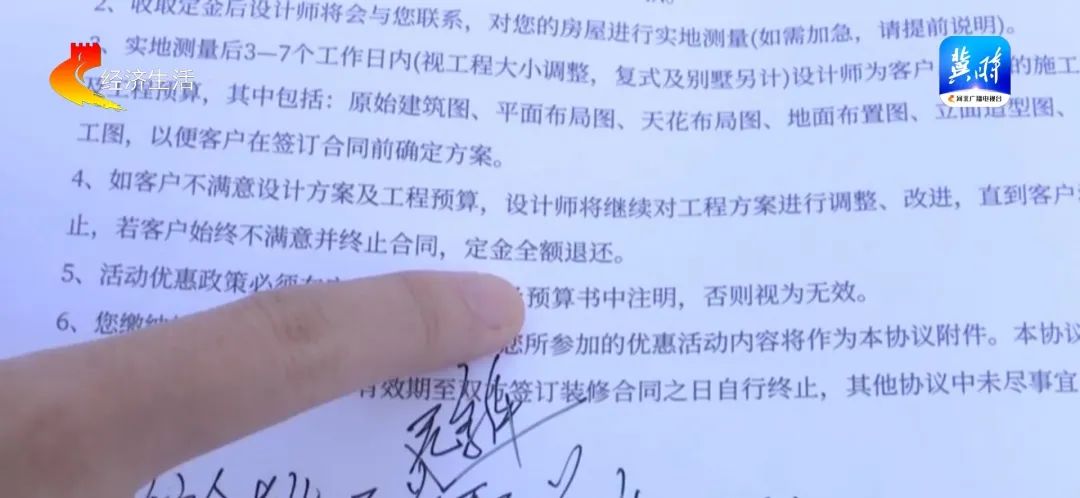 经济生活
冀时
河北广播电视台
2、收取定金后设计师将会与您联系，对您的房屋进行实地测量(如需加急，请提前说明)。
3、实地测量后3—7个工作日内(视工程大小调整，复式及别墅另计)设计师为客户 的施工
及工程预算，其中包括：原始建筑图、平面布局图、天花布局图、地面布置图、立面造型图、
工图，以便客户在签订合同前确定方案。
4、如客户不满意设计方案及工程预算，设计师将继续对工程方案进行调整、改进，直到客户
止，若客户始终不满意并终止合同，定金全额退还。
5、活动优惠政策必须在 预算书中注明，否则视为无效。
6、您缴纳 您所参加的优惠活动内容将作为本协议附件。本协议
有效期至双方签订装修合同之日自行终止，其他协议中未尽事宜